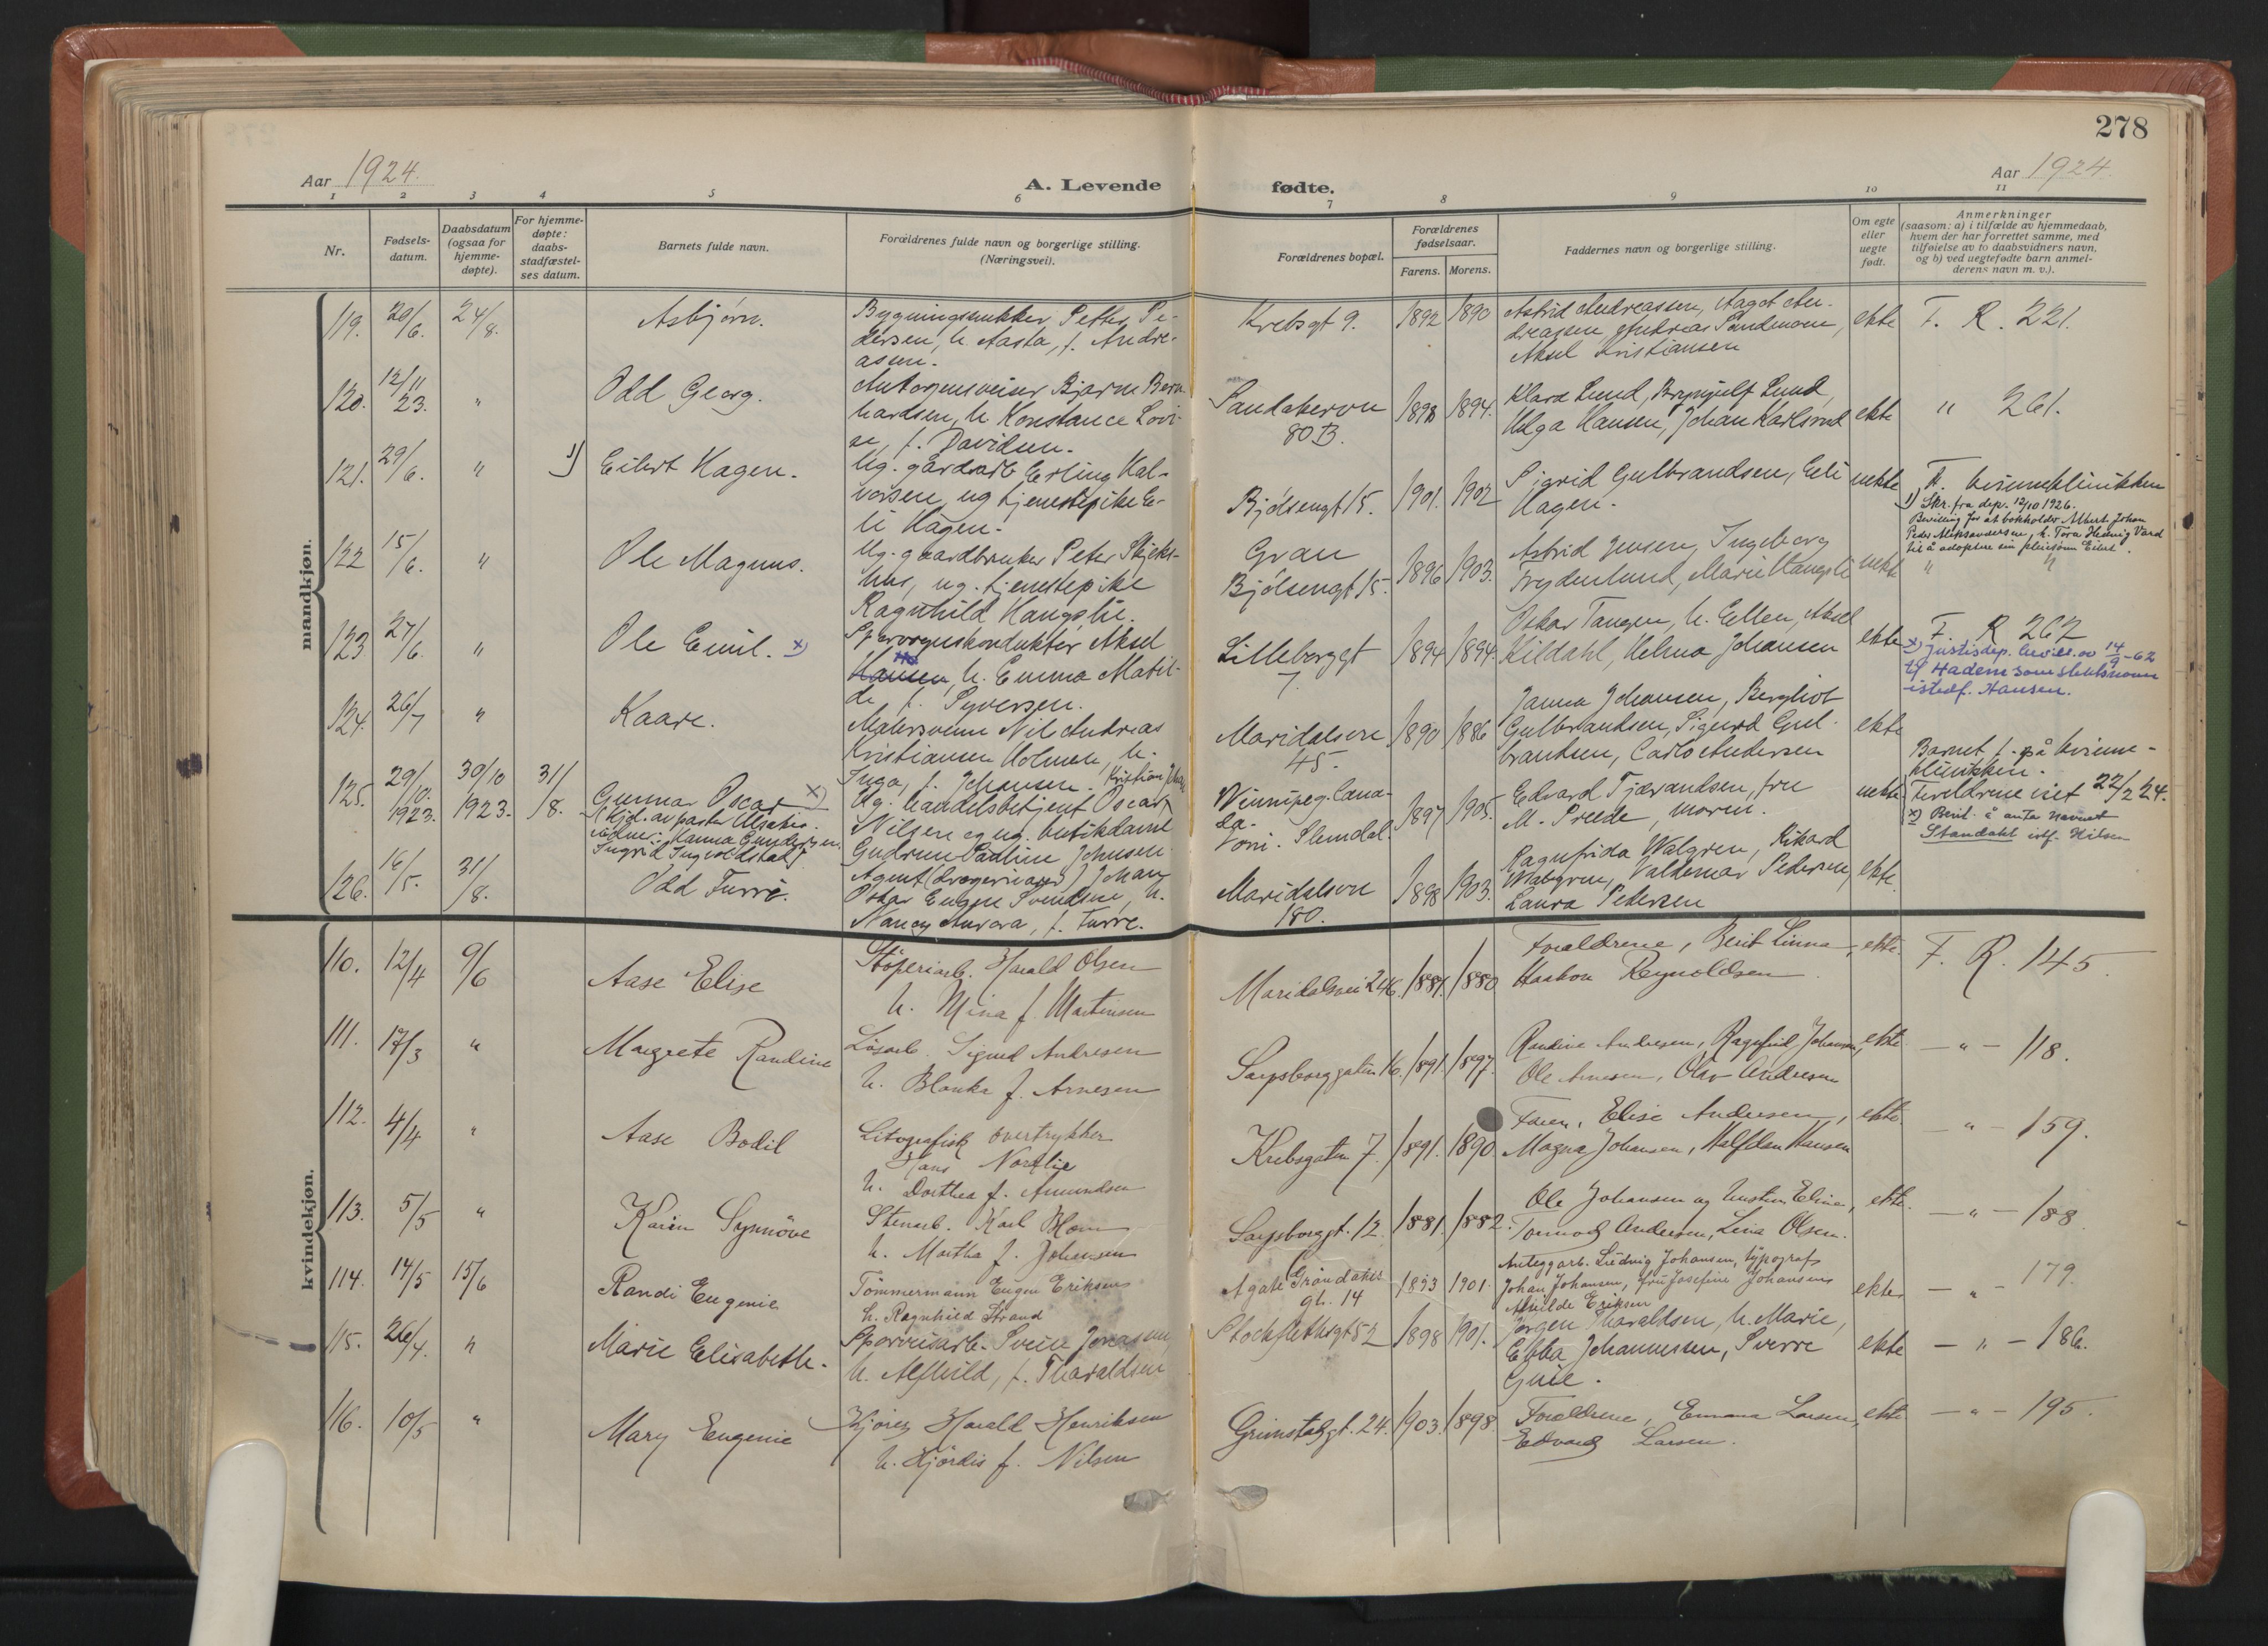 278
Aar 1924.
A. Levende fødte.
Aar 1924.
1 2 3 4 5 6 7 8 9 10 11
Nr.
Fødsels-
datum.
Daabsdatum
(ogsaa for
hjemme-
døpte).
For hjemme-
døpte:
daabs-
stadfæstel-
ses datum.
Barnets fulde navn.
Forældrenes fulde navn og borgerlige stilling.
(Næringsvei).
Forældrenes bopæl.
Forældrenes
fødselsaar.
Farens. Morens.
Faddernes navn og borgerlige stilling.
Om egte
eller
uegte
født.
Anmerkninger
(saasom: a) i tilfælde av hjemmedaab,
hvem der har forrettet samme, med
tilføielse av to daabsvidners navn,
og b) ved uegtefødte barn anmel-
derens navn m. v.).
mandkjøn.
119. 20/6. 24/8. Asbjørn.
Bygningssnekker Petter Pe-
dersen, h. Aasta, f. Andre-
asen.
Krebsgt 9. 1892 1890
Astrid Andreassen, Aagot An-
dreassen, Andreas Sandmoen,
Aksel Kristiansen
ekte F. R. 221.
120. 12/11 23. " Odd Georg.
Bjarne Bern-
hardsen, h. Konstance Lovi-
se, f. Davidsen.
Sandakervn
80 B.
1898 1894.
Klara Lund, Brynjulf Lund,
Helga Hansen, Johan Karlsrud
ekte " 261.
121. 29/6. " 1) Eilert Hagen.
Ug. gårdarb Erling Hal-
vorsen, ug tjenestepike E-
li Hagen.
Bjølsengt 15. 1901. 1902
Sigrid Gulbrandsen, Eli
Hagen.
uekte F. kvinneklinikken
1) Skr. fra dep. 12/10 1926.
Bevilling for at bokholder Albert Johan
Peder Aleksandersen, h. Tora Hedvig Vard
til å adoptere sin pleiesønn Eilert.
122 15/6. " Ole Magnus.
Ug. gaardbruker Peter Skjeks-
hus, ug. tjenestepike
Ragnhild Haugslie.
Gran
Bjølsengt 15. 1896 1903.
Astrid Jensen, Ingeborg
Frydenlund, Marie Haugsli
uekte " "
123 27/6. " Ole Emil. x)
Sporvognskonduktør Aksel
Hansen, h. Emma Matil-
de f. Syversen.
Lilleborggt
7.
1894 1894.
Oskar Tangen, h. Ellen, Aksel
Kildahl, Helma Johansen
ekte F. R 267
x) Justisdep. bevill. av 14/9-62
til Hadem som slektsnavn
istedf. Hansen.
124. 26/7 " Kaare.
Malersvenn Nils Andreas
Kristiansen Holmen, h.
Inga, f. Johansen.
Maridalsvn
45.
1890 1886
Janna Johansen, Bergliot
Gulbrandsen, Sigurd Gul-
brandsen, Carlo Andersen
ekte
125. 29/10. 1923. 30/10 1923. 31/8.
Gunnar Oscar x)
(Hjd. av pastor
vidner: Hanna Gundersen,
Ingrid Ingvoldstad)
Kristian Johan
Ug. handelsbetjent Oscar
Nilsen og ug. butikdame
Gudrun Pauline Johnsen.
Winnipeg. Cana-
da.
Slemdal.
1897 1905.
Edvard Tjærandsen, fru
M. Preede, moren.
uekte
Barnet f. på kvinne-
klinikken.
Foreldrene viet 22/2 24.
x) Beril. å anta navnet
Standahl istf. Nilsen
126. 16/5. 31/8. Odd Furre.
Agent (drogerivarer) Johan
Oskar Eugen Svendsen, h.
Nancy Aurora, f. Furre.
Maridalsvn
180.
1898 1903.
Ragnfrida Walgren, Rikard
Walgren, Valdemar Pedersen,
Laura Pedersen
ekte.
kvindekjøn.
110. 12/4 9/6 Aase Elise
Støperiarb. Harald Olsen
h. Mina f. Martinsen
Maridalsvei 246. 1881. 1880
Forældrene, Berit Linna,
Haakon Reynoldsen.
ekte F. R. 145.
111. 17/3 " Margrete Randine
Løsarb. Sigurd Andresen
h. Blanka f. Arnesen
Sarpsborggaten 16. 1891. 1897.
Randine Andresen, Ragnhild Johansen,
Ole Arnesen, Olav Andresen
ekte — " — 118.
112. 4/4 " Aase Bodil
Litografisk overtrykker
Hans Nordlie
h. Dorthea f. Amundsen
Krebsgaten 7. 1891. 1890
Faren, Elise Andersen,
Magna Johansen, Halfdan Hansen
ekte — " — 159.
113. 5/5 " Karin Synnöve
Stenarb. Karl Blom
h. Martha f. Johansen
Sarpsborggt. 12. 1881. 1882.
Ole Johansen og hustru Elina,
Tormod Andersen, Lina Olsen.
ekte. — " — 188.
114. 14/5 15/6 Randi Eugenie
Tömmermann Eugen Eriksen
h. Ragnhild Strand
Agate Gröndahls
gt. 14
1893 1901.
Anleggarb. Ludvig Johansen, typograf
Johan Johansen, fru Josefine Johansen
Alvilde Eriksen
ekte — " 179.
115. 26/4. " Marie Elisabeth.
Sporveisarb. Svein Jonassen,
h. Alfhild, f. Tharaldsen
Stockflethsgt 52 1898 1901.
Jørgen Tharaldsen, h. Marie,
Ebba Johannessen, Sverre
Gule.
ekte — " — 186.
116. 10/5 " Mary Eugenie
Kjörer Harald Henriksen
h. Hjördis f. Nilsen
Grimstadgt. 24. 1903. 1898.
Forældrene, Emma Larsen,
Edvard Larsen.
ekte — " — 195.